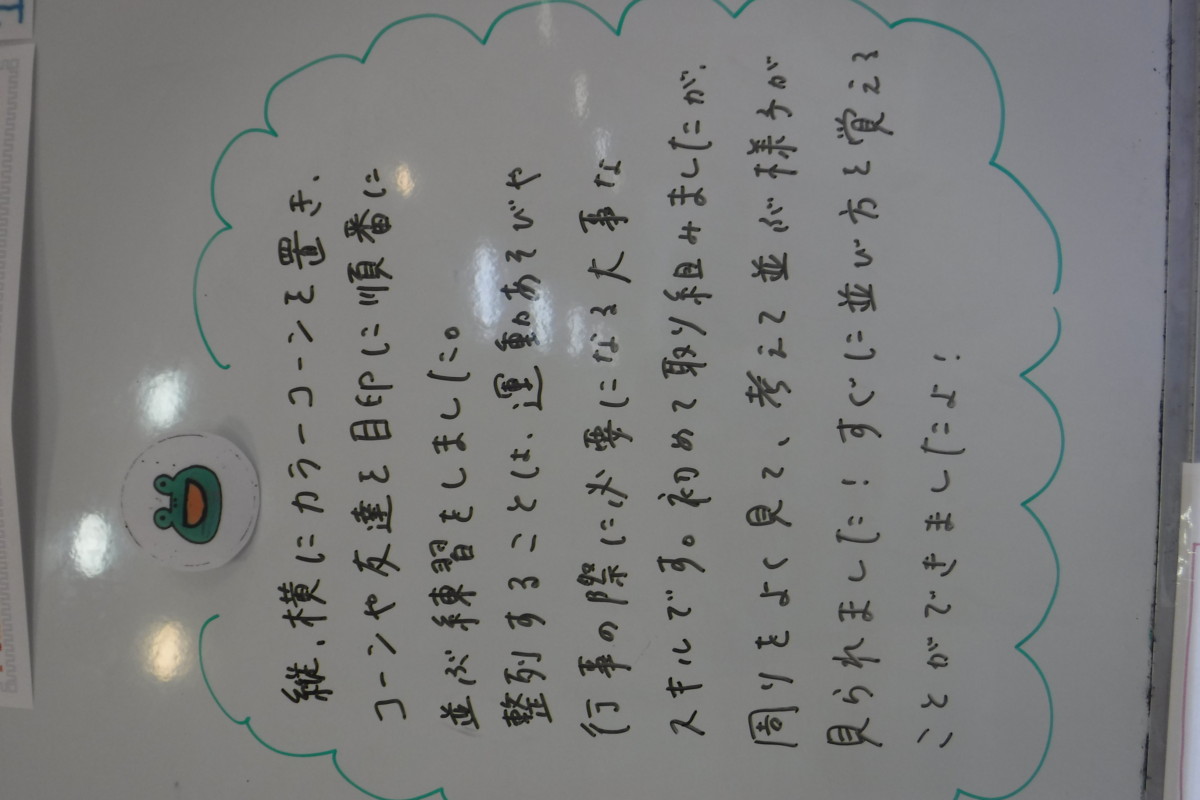 縦、横にカラーコーンを置き、
コーンや友達を目印に順番に
並ぶ練習をしました。
整列することは、運動あそびや
行事の際に必要になる大事な
スキルです。初めて取り組みましたが、
周りをよく見て、考えて並ぶ様子が
見られました！すぐに並び方を覚える
ことができましたよ！